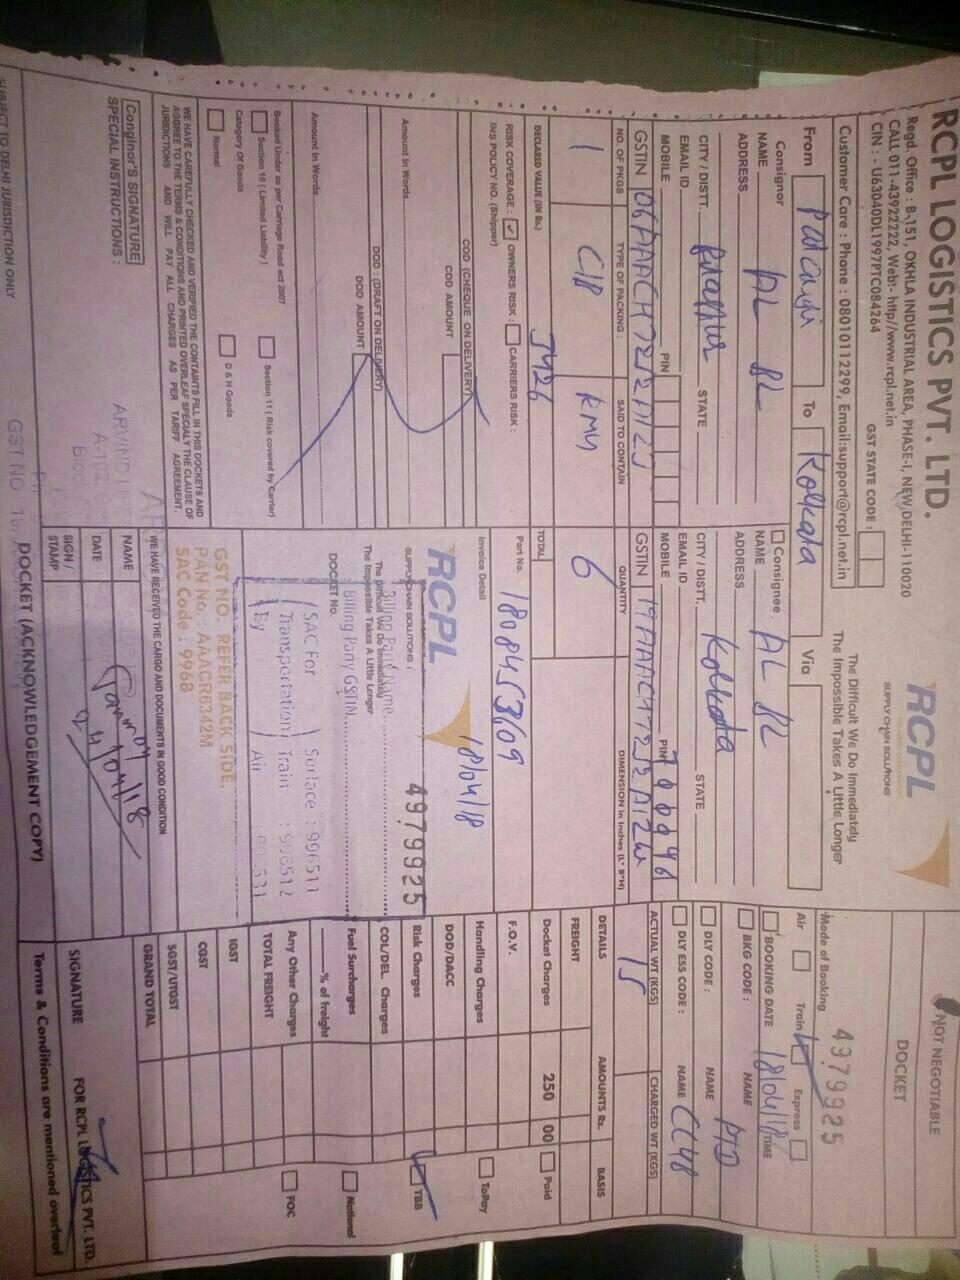 RCPL LOGISTICS PVT. LTD.
Regd. Office : B-151, OKHLA INDUSTRIAL AREA, PHASE-I, NEW DELHI-110020
CALL 011-43922222, Web:- http//www.rcpl.net.in
CIN : - U63040DL1997PTC084264
GST STATE CODE :
Customer Care : Phone : 08010112299, Email:support@rcpl.net.in
RCPL
SUPPLY CHAIN SOLUTIONS
The Difficult We Do Immediately
The Impossible Takes A Little Longer
NOT NEGOTIABLE
DOCKET
4979925
Mode of Booking
Air Train Express
From To Kolkata Via
Consignor
NAME AL BL
ADDRESS
CITY / DISTT. STATE
EMAIL ID PIN
MOBILE
GSTIN 06AAACH7252A1Z3
Consignee
NAME AL BL
ADDRESS
CITY / DISTT. Kolkata STATE
EMAIL ID PIN 700046
MOBILE
GSTIN 19AAACH7252A1ZW
BOOKING DATE 18/04/18 TIME
BKG CODE : NAME PTD
DLY CODE : NAME
DLY ESS CODE : NAME CC48
NO. OF PKGS TYPE OF PACKING : SAID TO CONTAIN QUANTITY DIMENSION in Inches (L* B*H) ACTUAL WT (KGS) CHARGED WT (KGS)
1 C/B 6 15
TOTAL
DECLARED VALUE (IN Rs.) 3426
RISK COVERAGE : OWNERS RISK : CARRIERS RISK :
INS POLICY NO. (Shipper)
COD (CHEQUE ON DELIVERY)
COD AMOUNT
Amount In Words
DOD : (DRAFT ON DELIVERY)
DOD AMOUNT
Amount In Words
Booked Under as per Carriage Road act 2007
Section 10 ( Limited Liability ) Section 11 ( Risk covered by Carrier)
Category Of Goods
Normal D & H Goods
WE HAVE CAREFULLY CHECKED AND VERIFIED THE CONTAINTS FILL IN THIS DOCKETS AND
AGGREE TO THE TERMS & CONDITIONS AND PRINTED OVERLEAF SPECIALY THE CLAUSE OF
JURIDICTIONS AND WILL PAY ALL CHARGES AS PER TARIFF AGREEMENT.
Conginor'S SIGNATURE
SPECIAL INSTRUCTIONS :
GST NO
SUBJECT TO DELHI JURISDICTION ONLY
Part No. 1808453609
Invoice Detail 18/04/18
RCPL
SUPPLY CHAIN SOLUTIONS
The Difficult We Do Immediately
The Impossible Takes A Little Longer
4979925
Billing Party Name
Billing Party GSTIN
DOCKET No.
SAC For Surface : 996511
Transportation Train : 996512
By Air
GST NO. REFER BACK SIDE.
PAN No. : AAACR6342M
SAC Code : 9968
WE HAVE RECEIVED THE CARGO AND DOCUMENTS IN GOOD CONDITION
NAME
DATE
SIGN /
STAMP
DOCKET (ACKNOWLEDGEMENT COPY)
DETAILS AMOUNTS Rs. BASIS
FREIGHT
Docket Charges 250 00 Paid
F.O.V.
Handling Charges ToPay
DOD/DACC
Risk Charges TBB
COL/DEL. Charges
Fuel Surcharges National
% of freight
Any Other Charges FOC
TOTAL FREIGHT
IGST
CGST
SGST/UTGST
GRAND TOTAL
SIGNATURE FOR RCPL LOGISTICS PVT. LTD.
Terms & Conditions are mentioned overleaf